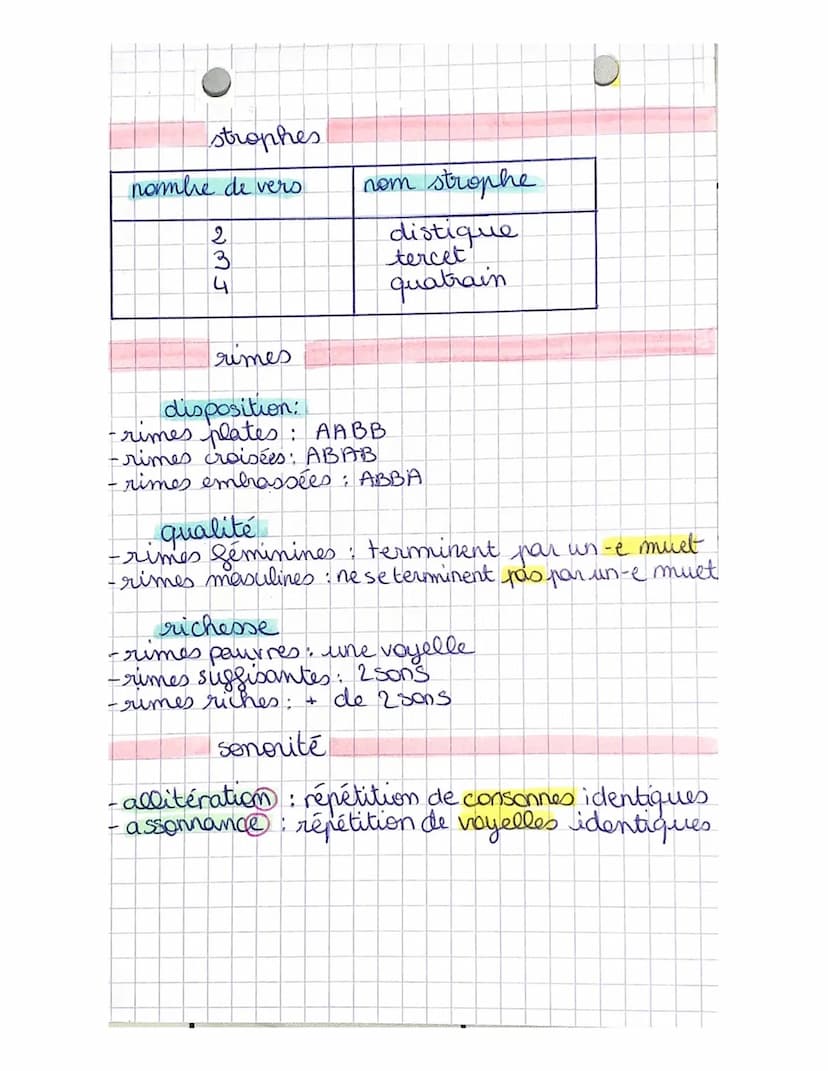 strophes
nombre de vers nom strophe
2 distique
3 tercet
4 quatrain
rimes
disposition:
-rimes plates : AABB
-rimes croisées : ABAB
-rimes embrassées : ABBA
qualité
-rimes féminines : terminent par un -e muet
-rimes masulines : ne se terminent pas par un -e muet
richesse
-rimes pauvres : une voyelle
-rimes suffisantes : 2 sons
-rimes riches : + de 2 sons
sonorité
-allitération : répétition de consonnes identiques
-assonnance : répétition de voyelles identiques